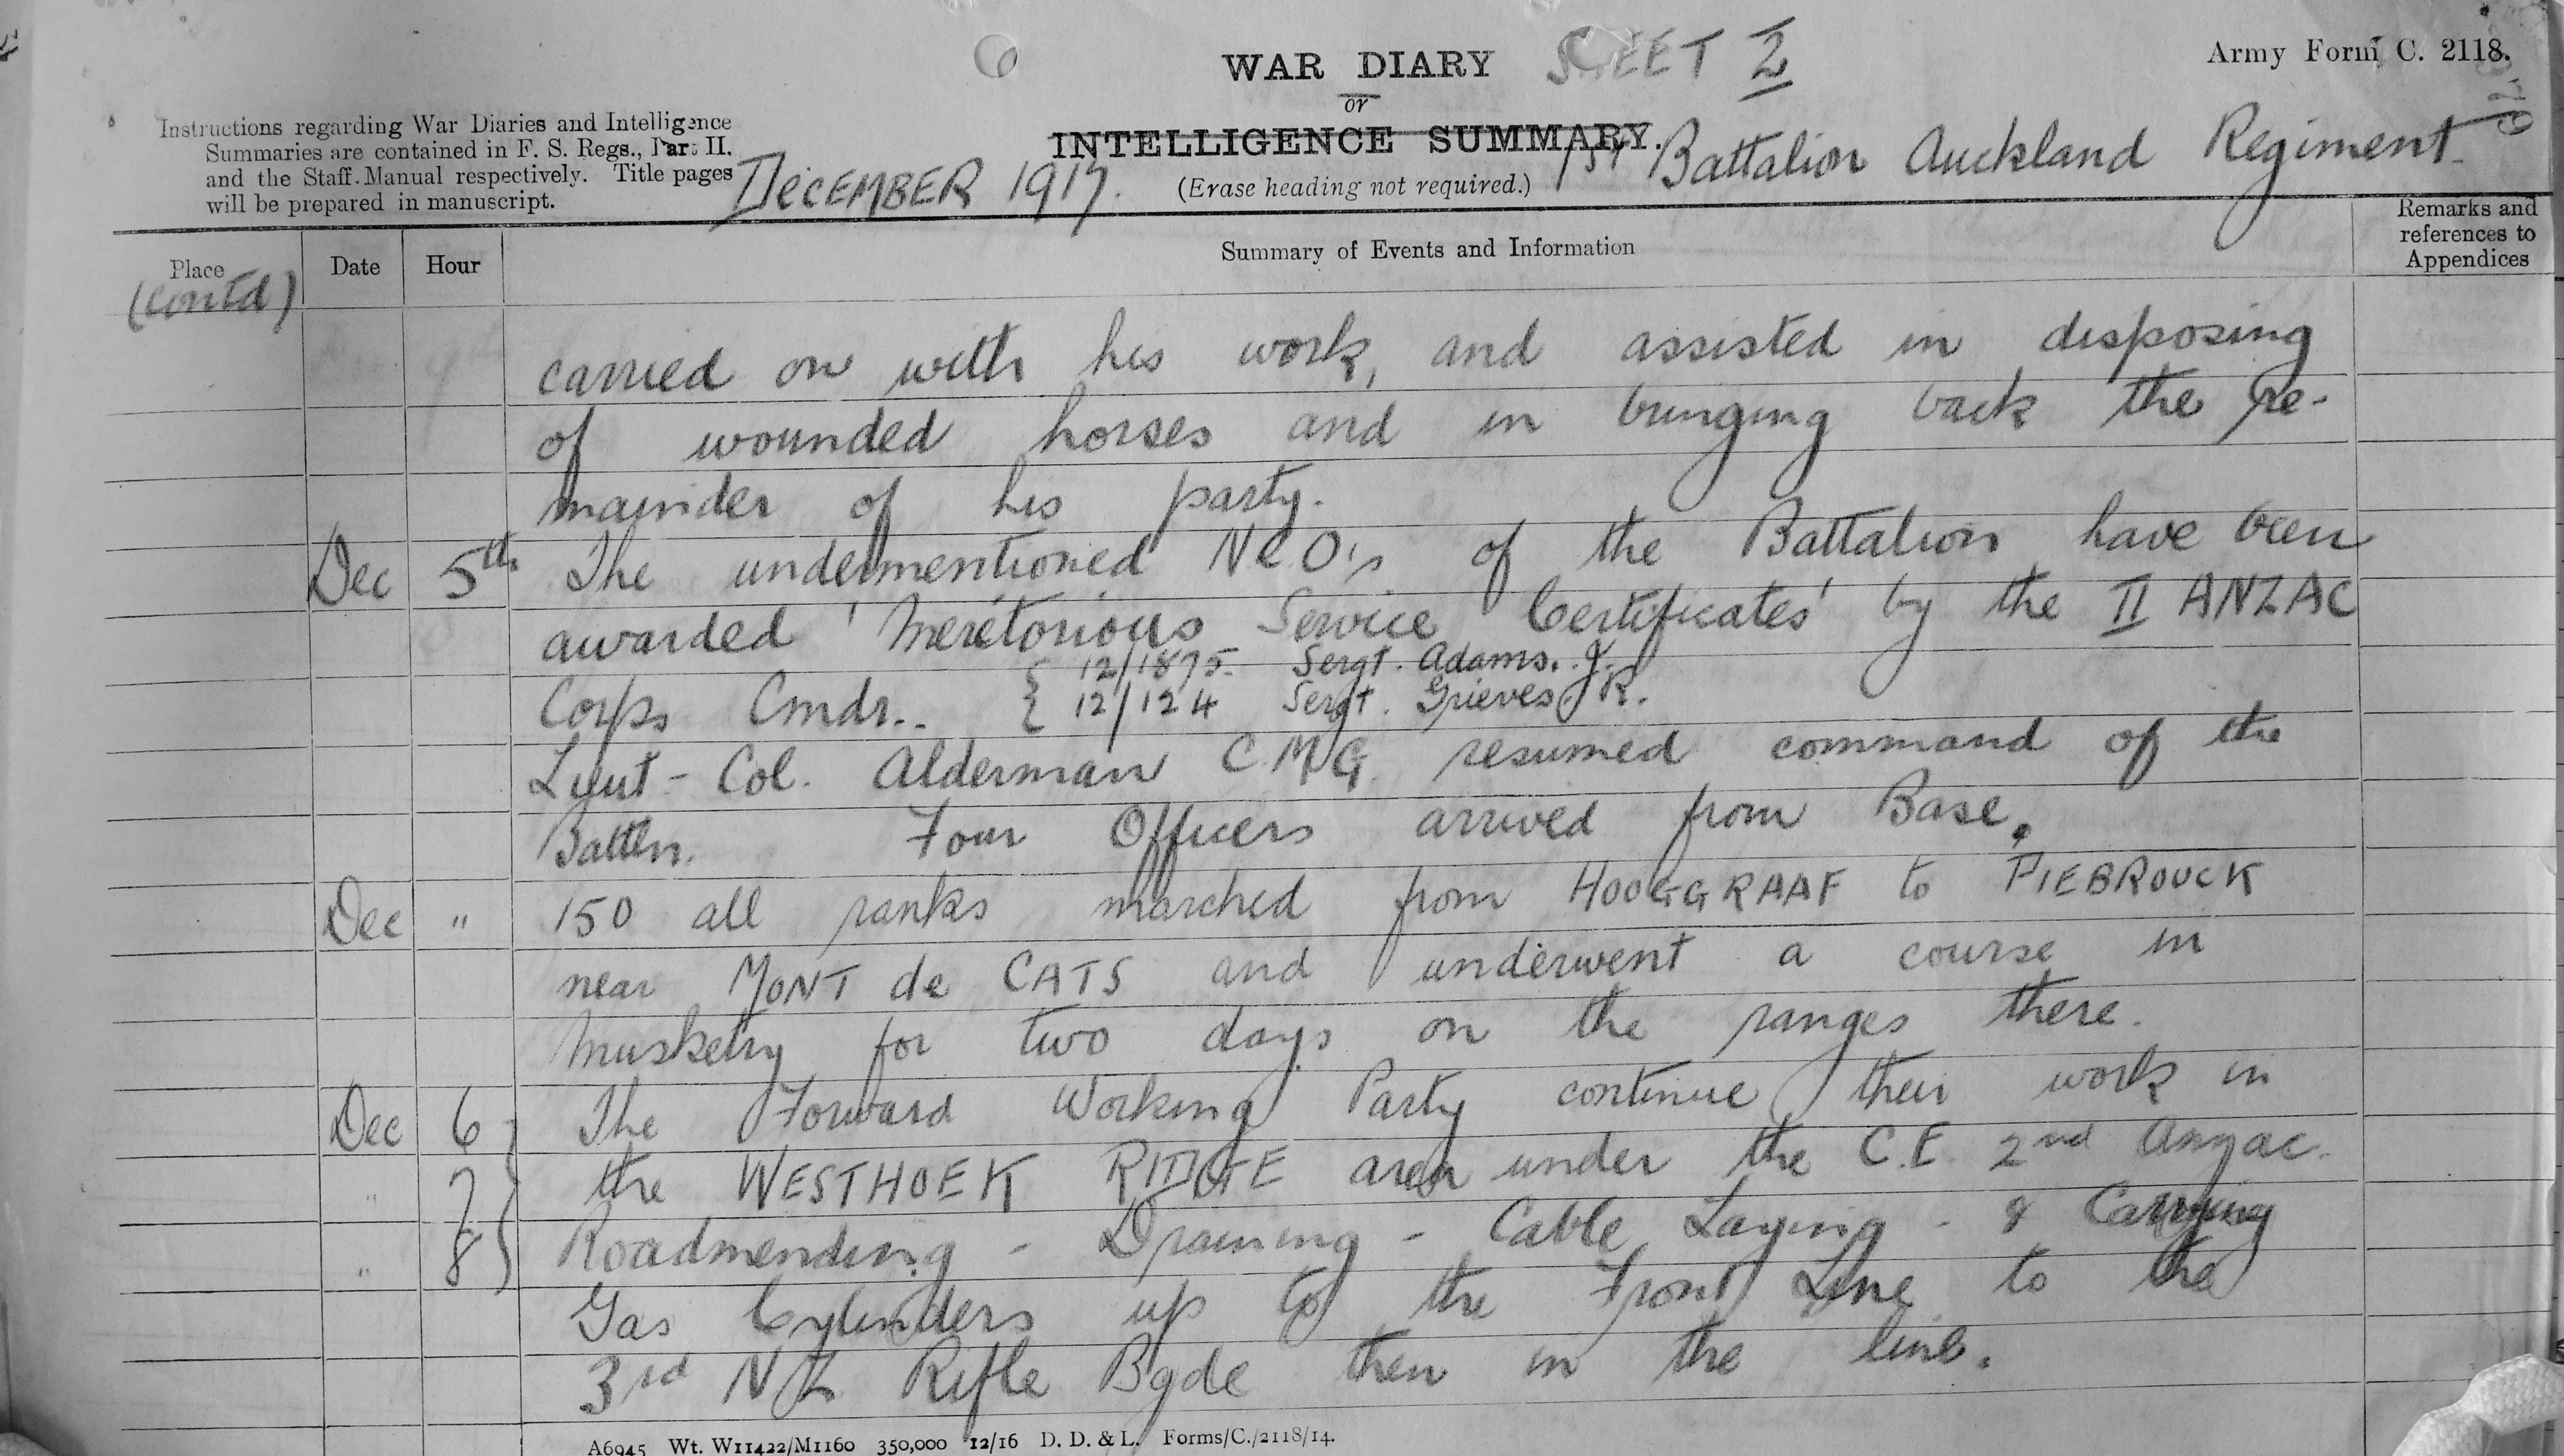 WAR DIARY SHEET 2
Army Form C. 2118.
or
INTELLIGENCE SUMMARY.
Instructions regarding War Diaries and Intelligence
Summaries are contained in F. S. Regs., Part II.
and the Staff Manual respectively. Title pages
will be prepared in manuscript.
DECEMBER 1917.
(Erase heading not required.)
1st Battalion Auckland Regiment
Place
(Contd)
Date
Hour
Summary of Events and Information
Remarks and
references to
Appendices
carried on with his work, and assisted in disposing
of wounded horses and in bringing back the re-
mainder of his party.
Dec 5th The undermentioned NCO's of the Battalion have been
awarded 'Meretorious Service Certificates' by the II ANZAC
{ 12/1875 Sergt. Adams. J.
Corps Cmdr.. { 12/124 Sergt. Grieves J R.
Lieut-Col. Alderman C.M.G. resumed command of the
Battln. Four Officers arrived from Base.
Dec " 150 all ranks marched from HOOGGRAAF to PIEBROUCK
near MONT de CATS and underwent a course in
Musketry for two days on the ranges there.
Dec 6 } The Forward Working Party continue their work in
" 7 } the WESTHOEK RIDGE area under the C.E. 2nd Anzac.
" 8 } Roadmending - Draining - Cable Laying - & Carrying
Gas Cylinders up to the Front Line to the
3rd NZ Rifle Bgde then in the line.
A6945 Wt. W11422/M1160 350,000 12/16 D. D. & L. Forms/C./2118/14.